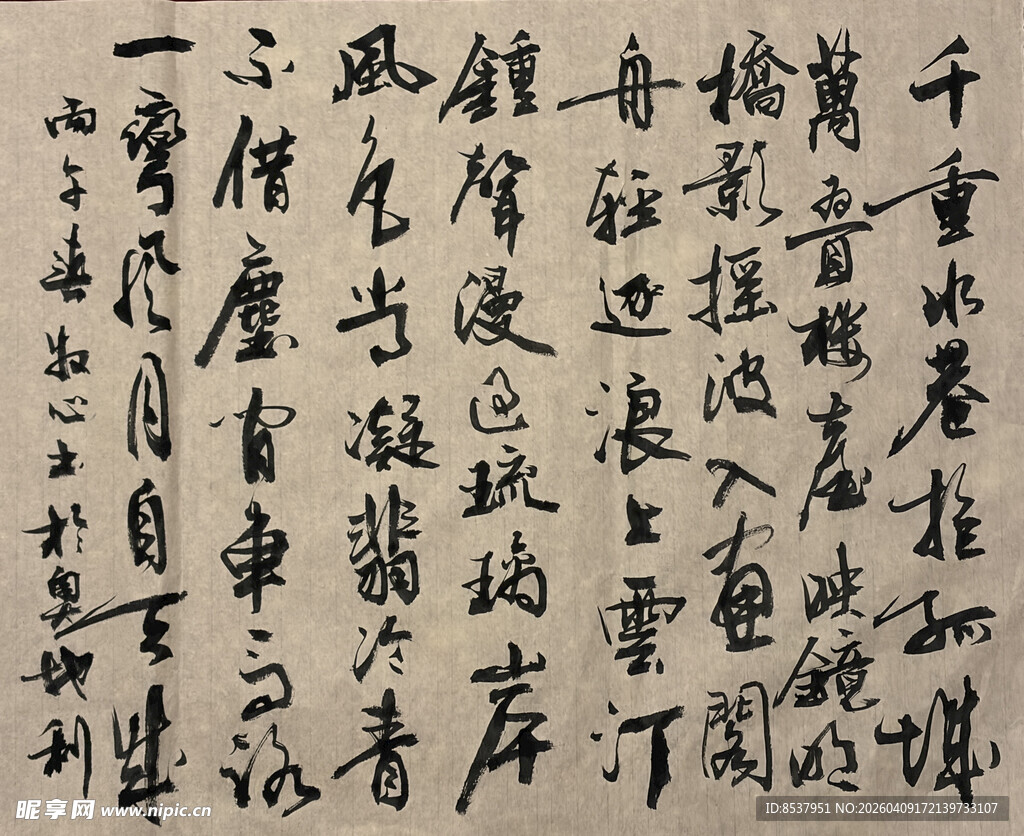 千重水巷抱孤城
萬疊樓臺映鏡明
橋影摇波入畫閣
舟輕逐浪上雲汀
鍾聲漫過琉璃岸
風色尚凝翡冷青
不借塵間車馬路
一彎風月自天成
丙午春 牧心书於奥地利
昵享网 www.nipic.cn
ID:8537951 NO:20260409172139733107